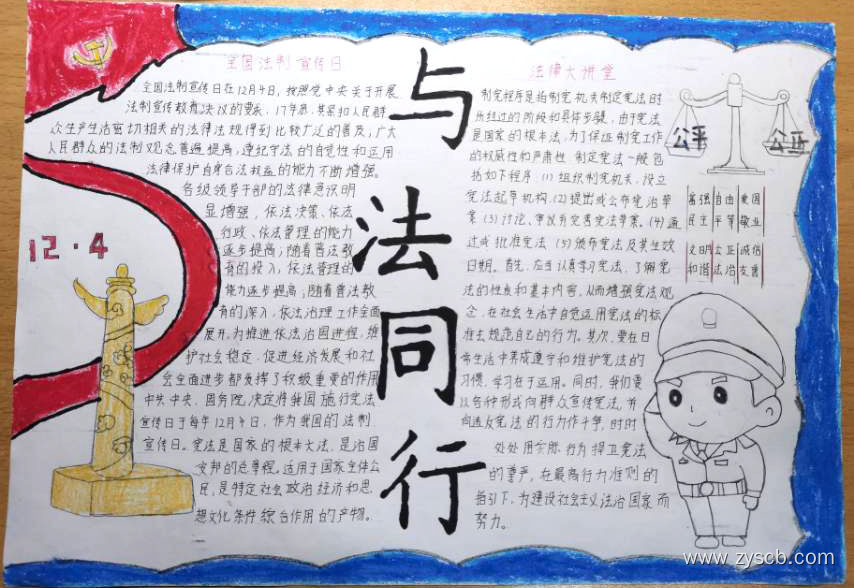 全国法制宣传日
全国法制宣传日在12月4日，按照党中央关于开展
法制宣传教育决议的要求，17年后，其景和人民群
众生产生活密切相关的法律法规得到比较广泛的普及；广大
人民群众的法制观念普遍提高，遵纪守法的自觉性和运用
法律保护自身合法权益的能力不断增强。
各级领导干部的法律意识明
显增强，依法决策、依法
行政、依法管理的能力
逐步提高；随着普法教
育的投入，依法管理的
能力逐步提高；随着普法教
育的深入，依法治理工作全面
展开，为推进依法治国进程，维
护社会稳定，促进经济发展和社
会全面进步都发挥了积极重要的作用
中共中央、国务院，决定将我国施行宪法
宣传日于每年12月4日，作为我国的法制
宣传日。宪法是国家的根本大法，是治国
安邦的总章程，适用于国家全体公
民，是特定社会政治经济和思
想文化条件综合作用的产物。
与法同行
法律大讲堂
制宪程序是指制宪机关制定宪法时
所经过的阶段和具体步骤，由于宪法
是国家的根本法，为了保证制宪工作
的权威性和严肃性，制定宪法一般包
括如下程序：(1) 组织制宪机关，设立
宪法起草机构。(2) 提出或公布宪法草
案 (3) 讨论、审议并完善宪法草案。(4) 通
过或批准宪法 (5) 颁布宪法及其生效
日期。首先，应当认真学习宪法，了解宪
法的性质和基本内容，从而增强宪法观
念，在社会生活中自觉运用宪法的标
准去规范自己的行为。其次，要在日
常生活中养成遵守和维护宪法的
习惯，学习在于运用。同时，我们要
以各种形式向群众宣传宪法，并
向违反宪法的行为作斗争，时时
处处用实际行为捍卫宪法
的尊严，在最高行为准则的
指引下，为建设社会主义法治国家而
努力。
公平
公正
富强 自由 爱国
民主 平等 敬业
文明 公正 诚信
和谐 法治 友善
12·4
www.zyscb.com